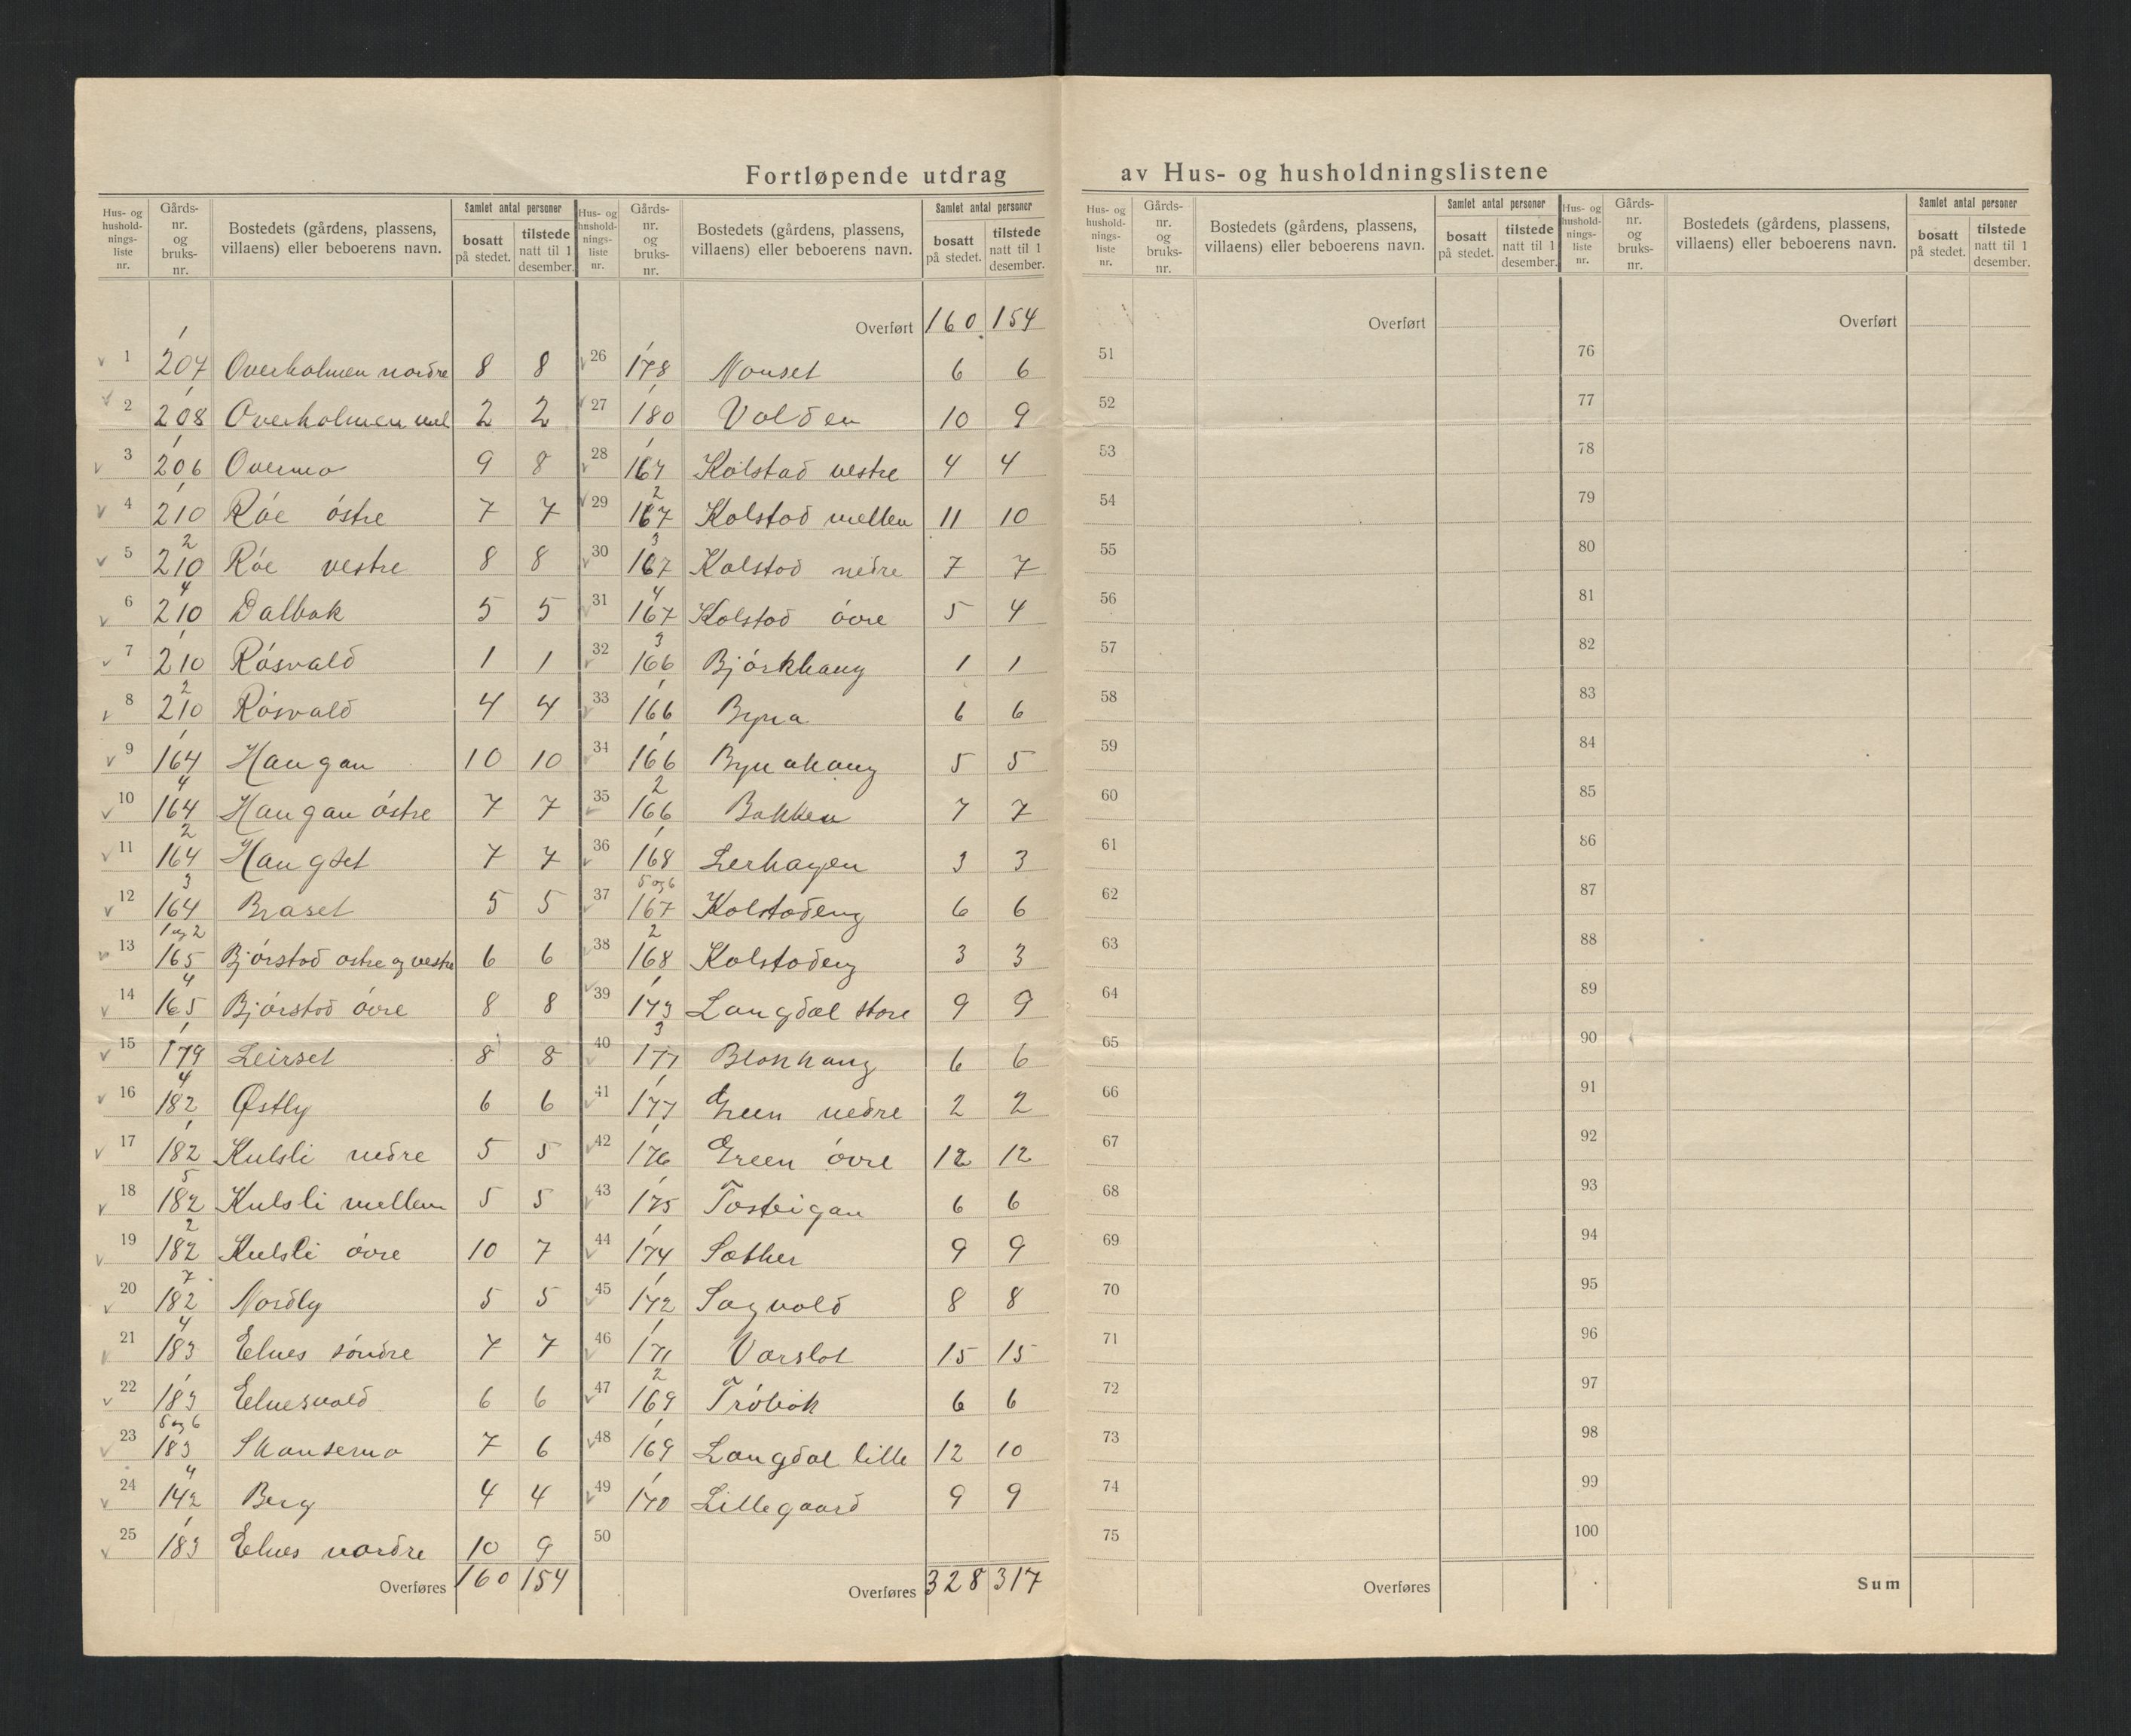 Fortløpende utdrag av Hus- og husholdningslistene
Hus- og hushold-nings-liste nr. | Gårds-nr. og bruks-nr. | Bostedets (gårdens, plassens, villaens) eller beboerens navn. | Samlet antal personer | bosatt på stedet. | tilstede natt til 1 desember.
Hus- og hushold-nings-liste nr. | Gårds-nr. og bruks-nr. | Bostedets (gårdens, plassens, villaens) eller beboerens navn. | Samlet antal personer | bosatt på stedet. | tilstede natt til 1 desember.
1 207/1 Overholmen nordre 8 8
2 208/1 Overholmen 2 2
3 206/1 Overmo 9 8
4 210/1 Róe óstre 7 7
5 210/2 Róe vestre 8 8
6 210/4 Dalbak 5 5
7 210/1 Rósvald 1 1
8 210/2 Rósvald 4 4
9 164/1 Haugan 10 10
10 164/4 Haugan óstre 7 7
11 164/2 Haugset 7 7
12 164/3 Braset 5 5
13 165/1 og 2 Bjórstad ostre og vestre 6 6
14 165/4 Bjórstad óvre 8 8
15 179/1 Leirset 8 8
16 182/4 Østly 6 6
17 182/1 Kulsli nedre 5 5
18 182/5 Kulsli mellem 5 5
19 182/2 Kulsli óvre 10 7
20 182/7 Nordly 5 5
21 183/4 Elnes sóndre 7 7
22 183/1 Elnesvald 6 6
23 183/5 og 6 Skansemo 7 6
24 142/4 Berg 4 4
25 183/1 Elnes nordre 10 9
Overføres 160 154
Overført 160 154
26 178/1 Nonset 6 6
27 180/1 Volden 10 9
28 167/1 Kolstad vestre 4 4
29 167/2 Kolstad mellem 11 10
30 167/3 Kolstad nedre 7 7
31 167/4 Kolstad óvre 5 4
32 166/3 Bjórkhaug 1 1
33 166/1 Byna 6 6
34 166/1 Bynahaug 5 5
35 166/2 Bakken 7 7
36 168/1 Lerhagen 3 3
37 167/5 og 6 Kolstadeng 6 6
38 168/2 Kolstadeng 3 3
39 173 Langdal store 9 9
40 177/3 Blokhaug 6 6
41 177/1 Green nedre 2 2
42 176/1 Green óvre 12 12
43 175/1 Tosteigan 6 6
44 174/1 Sæther 9 9
45 172/1 Sagvold 8 8
46 171/1 Vorslot 15 15
47 169/2 Tróbak 6 6
48 169/1 Langdal lille 12 10
49 170/1 Lillegaard 9 9
50
Overføres 328 317
Hus- og hushold-nings-liste nr. | Gårds-nr. og bruks-nr. | Bostedets (gårdens, plassens, villaens) eller beboerens navn. | Samlet antal personer | bosatt på stedet. | tilstede natt til 1 desember.
Hus- og hushold-nings-liste nr. | Gårds-nr. og bruks-nr. | Bostedets (gårdens, plassens, villaens) eller beboerens navn. | Samlet antal personer | bosatt på stedet. | tilstede natt til 1 desember.
Overført
51
52
53
54
55
56
57
58
59
60
61
62
63
64
65
66
67
68
69
70
71
72
73
74
75
Overføres
Overført
76
77
78
79
80
81
82
83
84
85
86
87
88
89
90
91
92
93
94
95
96
97
98
99
100
Sum